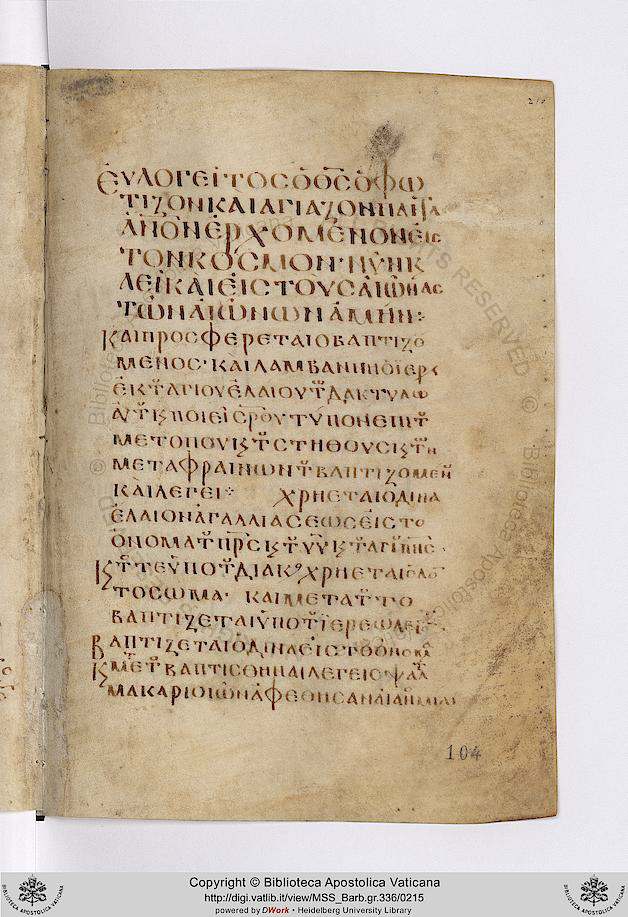 ΕΥΛΟΓΕΙΤΟΣ Ο ΘΣ Ο ΦΩ
ΤΙΖΩΝ ΚΑΙ ΑΓΙΑΖΩΝ ΠΑΝΤΑ
ΑΝΟΝ ΕΡΧΟΜΕΝΟΝ ΕΙΣ
ΤΟΝ ΚΟΣΜΟΝ· ΝΥΝ Κ
ΑΕΙ ΚΑΙ ΕΙΣ ΤΟΥΣ ΑΙΩΝΑΣ
ΤΩΝ ΑΙΩΝΩΝ ΑΜΗΝ:
ΚΑΙ ΠΡΟΣΦΕΡΕΤΑΙ Ο ΒΑΠΤΙΖΟ
ΜΕΝΟΣ· ΚΑΙ ΛΑΜΒΑΝΗ Ο ΙΕΡΕ
ΕΚ Τ ΑΓΙΟΥ ΕΛΑΙΟΥ Τ ΔΑΚΤΥΛΩ
ΠΟΙΕΙ ΣΡΟΥ ΤΥΠΟΝ ΕΠΙ Τ
ΜΕΤΟΠΟΥ Κ Τ ΣΤΗΘΟΥΣ Κ Τ
ΜΕΤΑΦΡΑΙΝΩΝ Τ ΒΑΠΤΙΖΟΜΕΝ
ΚΑΙ ΛΕΓΕΙ: ΧΡΗΕΤΑΙ Ο ΔΙΝΑ
ΕΛΑΙΟΝ ΑΓΑΛΛΙΑΣΕΩΣ ΕΙΣ ΤΟ
ΟΝΟΜΑ Τ ΠΡΣ Κ Τ ΥΥ Κ Τ ΑΓΙ ΠΝΣ
Κ ΥΠΟ Τ ΔΙΑΚ ΧΡΗΕΤΑΙ ΟΛΟ
ΤΟ ΣΩΜΑ· ΚΑΙ ΜΕΤΑ ΤΤΟ
ΒΑΠΤΙΖΕΤΑΙ ΥΠΟ Τ ΙΕΡΕΩ
ΒΑΠΤΙΖΕΤΑΙ Ο ΔΙΝΑ ΕΙΣ ΤΟ ΟΝΟΜΑ
Κ ΜΕΤ ΒΑΠΤΙΣΘΗΝΑΙ ΛΕΓΕΙ Ο ΨΑΛ
ΜΑΚΑΡΙΟΙ ΩΝ ΑΦΕΘΗΣΑΝ ΑΙ ΑΝΟΜΙΑΙ
104
Copyright © Biblioteca Apostolica Vaticana
http://digi.vatlib.it/view/MSS_Barb.gr.336/0215
powered by DWork • Heidelberg University Library